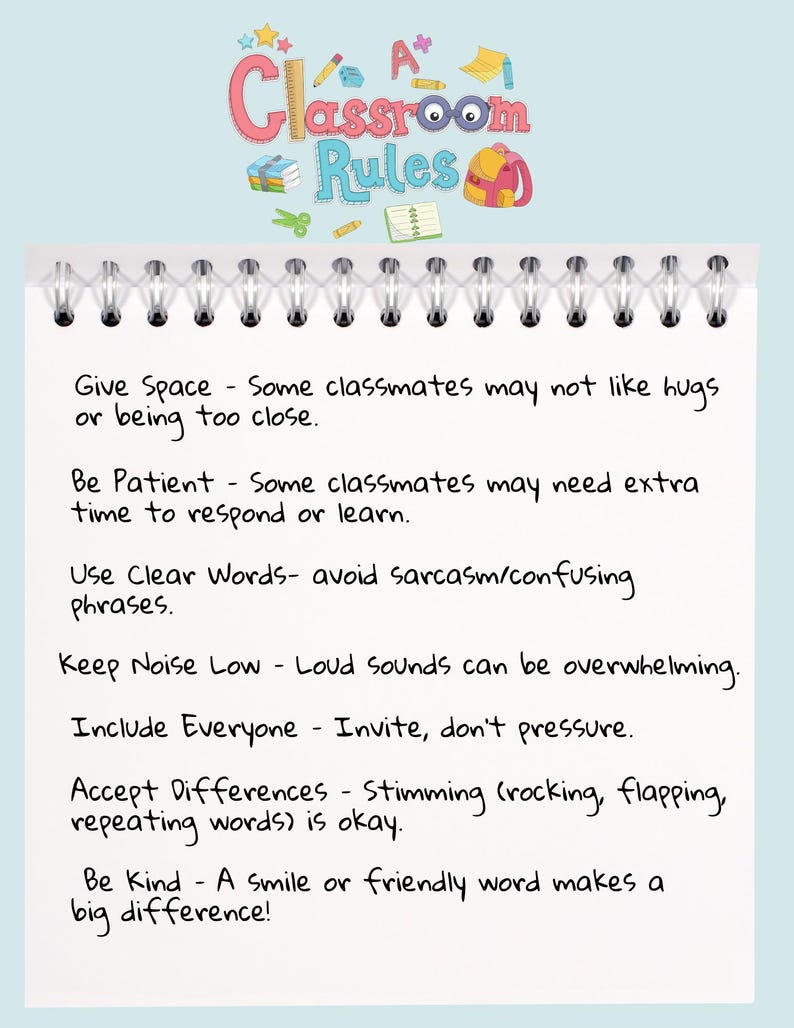 A+
Classroom
Rules
Give Space - Some classmates may not like hugs
or being too close.
Be Patient - Some classmates may need extra
time to respond or learn.
Use Clear Words- avoid sarcasm/confusing
phrases.
Keep Noise Low - Loud sounds can be overwhelming.
Include Everyone - Invite, don't pressure.
Accept Differences - Stimming (rocking, flapping,
repeating words) is okay.
Be Kind - A smile or friendly word makes a
big difference!